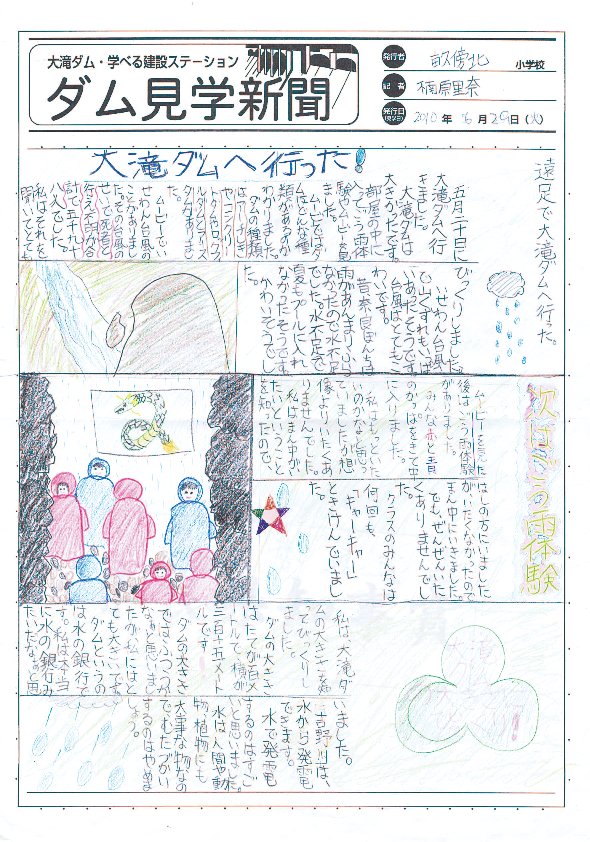 大滝ダム・学べる建設ステーション
ダム見学新聞
発行者
畝傍北
小学校
記者
楠原里奈
発行日
2010年6月29日(火)
大滝ダムへ行った!
遠足で大滝ダムへ行った。
五月二十日に
大滝ダムへ行
きました。
大滝ダムは
大きかったです。
部屋の中に
入ってごう雨体
験やムービーを見
ムービーではダ
ムはどんな種
類があるのか
わかりました。
ダムの種類
はアーチしき
やコンクリー
ルダムなどいろいろ
ムービーでい
せわん台風の
ことがありまし
た。その台風の
せいで死者と
行え不明が合
計で五千九十
八人でした。
私はそれを
聞いてとても
びっくりしました。
いせわん台風
で山くずれもいっぱ
いあったそうです。
台風はとてもこ
わいです。
昔奈良県は
雨があんまりふら
なかったので水不足
でした。水不足で
夏もプールに入れ
なかったそうです。
かわいそうでし
次はごう雨体験
ムービーを見た
後はごう雨体験
がありました。
みんな赤と青
のかっぱをきて中
に入りました。
私はもっといた
いのかなと思っ
ていましたが想
像よりいたくあ
りませんでした。
私はまん中が
たいということ
を知ったので、
はしの方にいました
がいたくなかったので
まん中にいきました。
でも、ぜんぜんいた
くありませんでし
た。
クラスのみんなは
何回も
「キャーキャー」
とさけんでいまし
た。
私は大滝ダ
ムの大きさを知
ってびっくりし
ました。
ダムの大きさ
はたてが百メ
ートルで、横が
三百十五メート
ルです。
ダムの大きさ
ではふつうが
なぁと思いまし
たが私にはと
ても大きいです。
ダムというの
は水の銀行で
す。私は本当
に水の銀行み
たいだなぁと思
いました。
吉野川は、
水から発電
できます。
水で発電
するのはすご
いと思いました。
水は人間や動
物、植物にも
大事な物なの
でむだづかい
するのはやめま
しょう。